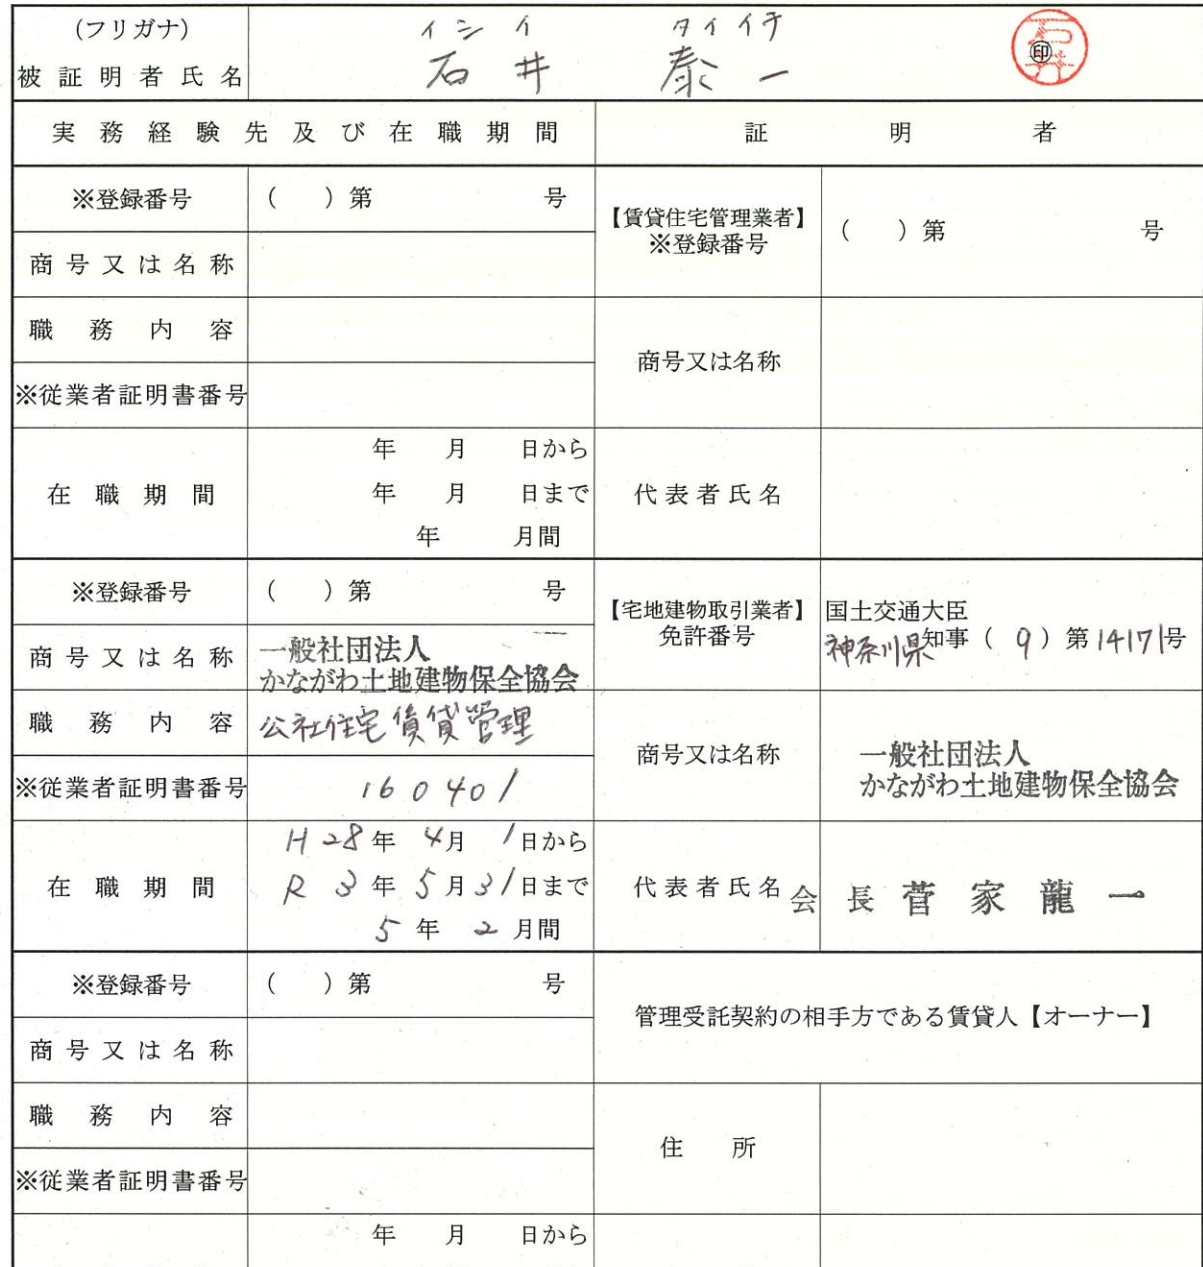 (フリガナ) イシイ タイイチ
被証明者氏名 石井 泰一 ㊞
実務経験先及び在職期間 証明者
※登録番号 ( )第 号
【賃貸住宅管理業者】
※登録番号 ( )第 号
商号又は名称
職務内容
商号又は名称
※従業者証明書番号
在職期間
年 月 日から
年 月 日まで
年 月間
代表者氏名
※登録番号 ( )第 号
【宅地建物取引業者】
免許番号
国土交通大臣
神奈川県知事(9)第14171号
商号又は名称
一般社団法人
かながわ土地建物保全協会
職務内容 公社住宅賃貸管理
商号又は名称
一般社団法人
かながわ土地建物保全協会
※従業者証明書番号 160401
在職期間
H28年 4月 1日から
R3年 5月31日まで
5年 2月間
代表者氏名 会長 菅家龍一
※登録番号 ( )第 号
管理受託契約の相手方である賃貸人【オーナー】
商号又は名称
職務内容
住所
※従業者証明書番号
年 月 日から